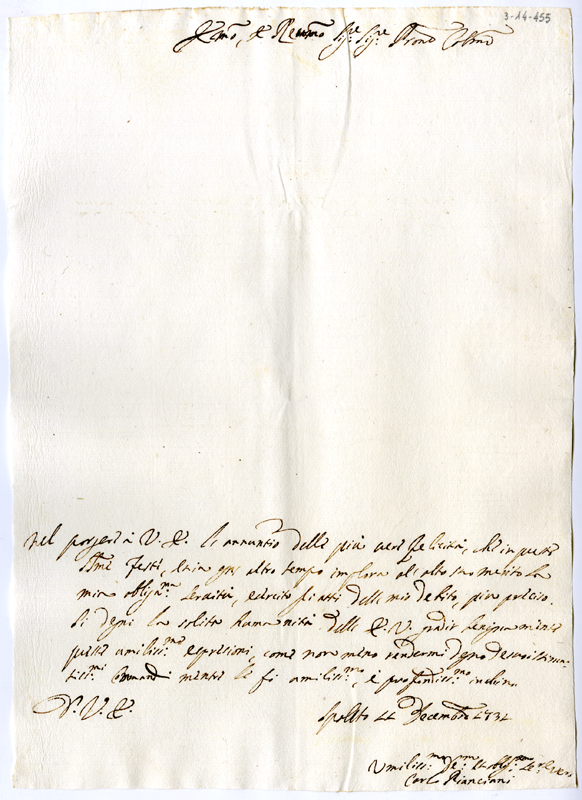 3-14-455
Em̃o, e Reum̃o Sig.re Sig.re Prone Colmo
Nel porger à V. E. l'annuntio delle più vere felicità, che in queste
Sme Feste, et in ogni altro tempo implora all'alto suo merito la
mia obligma servitù, esercito gli atti del mio debito, più preciso.
Si degni la solita humanità dell' E. V. gradir benignamente
queste umilissme espressioni, come non meno rendermi degno de suoi stima-
tissmi Comandi mentre le fò umilissmo, e profondissmo inchino
D. V. E.
Spoleto 22 Decembre 1732
Umilissmo
Carlo Pianciani